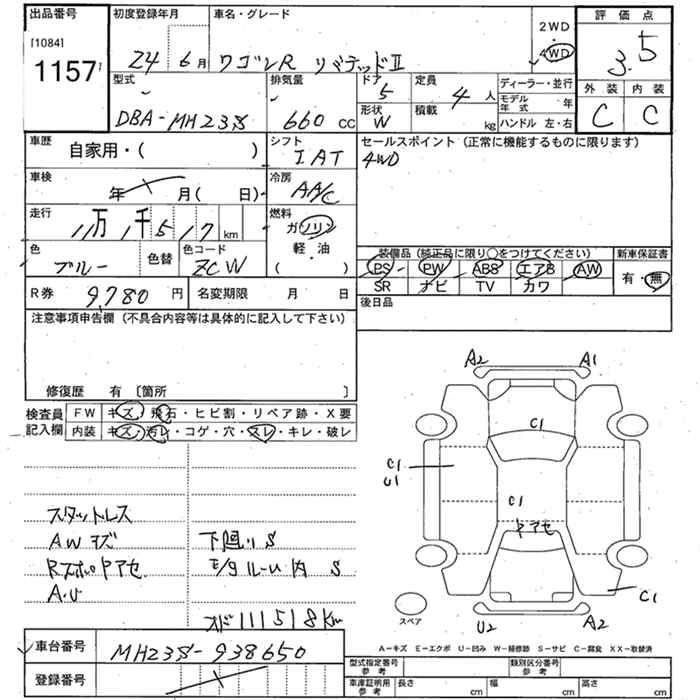 出品番号 初度登録年月 車名・グレード 2WD 評価点
[1084]
1157 24 6月 ワゴンR リミテッドII 4WD 3.5
型式 排気量 ドア 定員 ディーラー・並行 外装 内装
DBA-MH23S 660 CC 5 4人 モデル年式 年 C C
形状 W 積載 kg ハンドル 左・右
車歴 自家用・( ) シフト IAT セールスポイント (正常に機能するものに限ります)
4WD
車検 年 月( 日) 冷房 AA/C
走行 11万1千517 km 燃料 ガソリン
軽・油
( )
色 ブルー 色替 色コード ZCW
装備品 (純正品に限り○をつけてください) 新車保証書
PS PW ABS エアB AW 有・無
SR ナビ TV カワ
R券 9,780円 名変期限 月 日 後日品
注意事項申告欄 (不具合内容等は具体的に記入して下さい)
修復歴 有 〔箇所 〕
検査員記入欄 FW キズ・飛石・ヒビ割・リペア跡・X要
内装 キズ・汚レ・コゲ・穴・スレ・キレ・破レ
A2 A1
C1
C1
U1
C1
ヤアセ
C1
U2 A2
スペア
スタットレス
AWキズ 下廻りS
Rスポヤアセ E/gルーム内 S
A.U
オド111518Km
A-キズ E-エクボ U-凹み W-補修跡 S-サビ C-腐食 XX-取替済
車台番号 MH23S-938650
登録番号
型式指定番号 参考 類別区分番号 参考
車庫証明用 参考 長さ cm 幅 cm 高さ cm